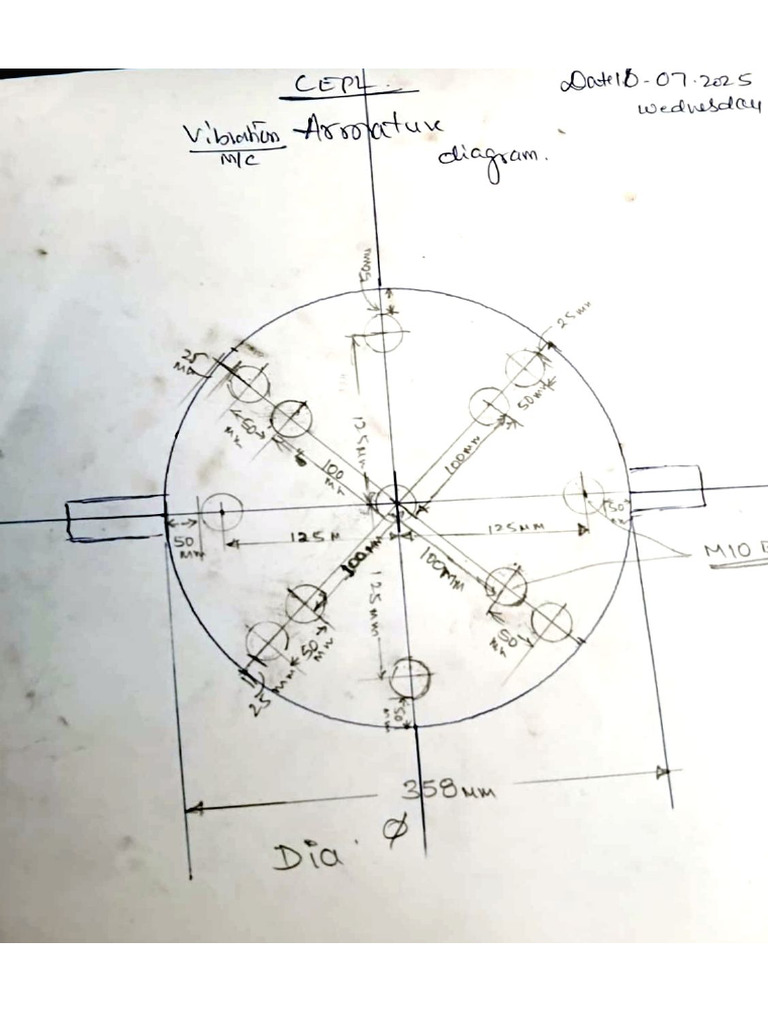 CEPL
Date 16-07-2025
Wednesday
Vibration Armature
M/C
diagram.
50mm
25 mm
25
MM
50mm
50
MM
125MM
100mm
100
MM
50
MM
50
MM
125M
125MM
100MM
100MM
125MM
M10
50
MM
50
MM
25 MM
50
MM
358MM
Dia Ø